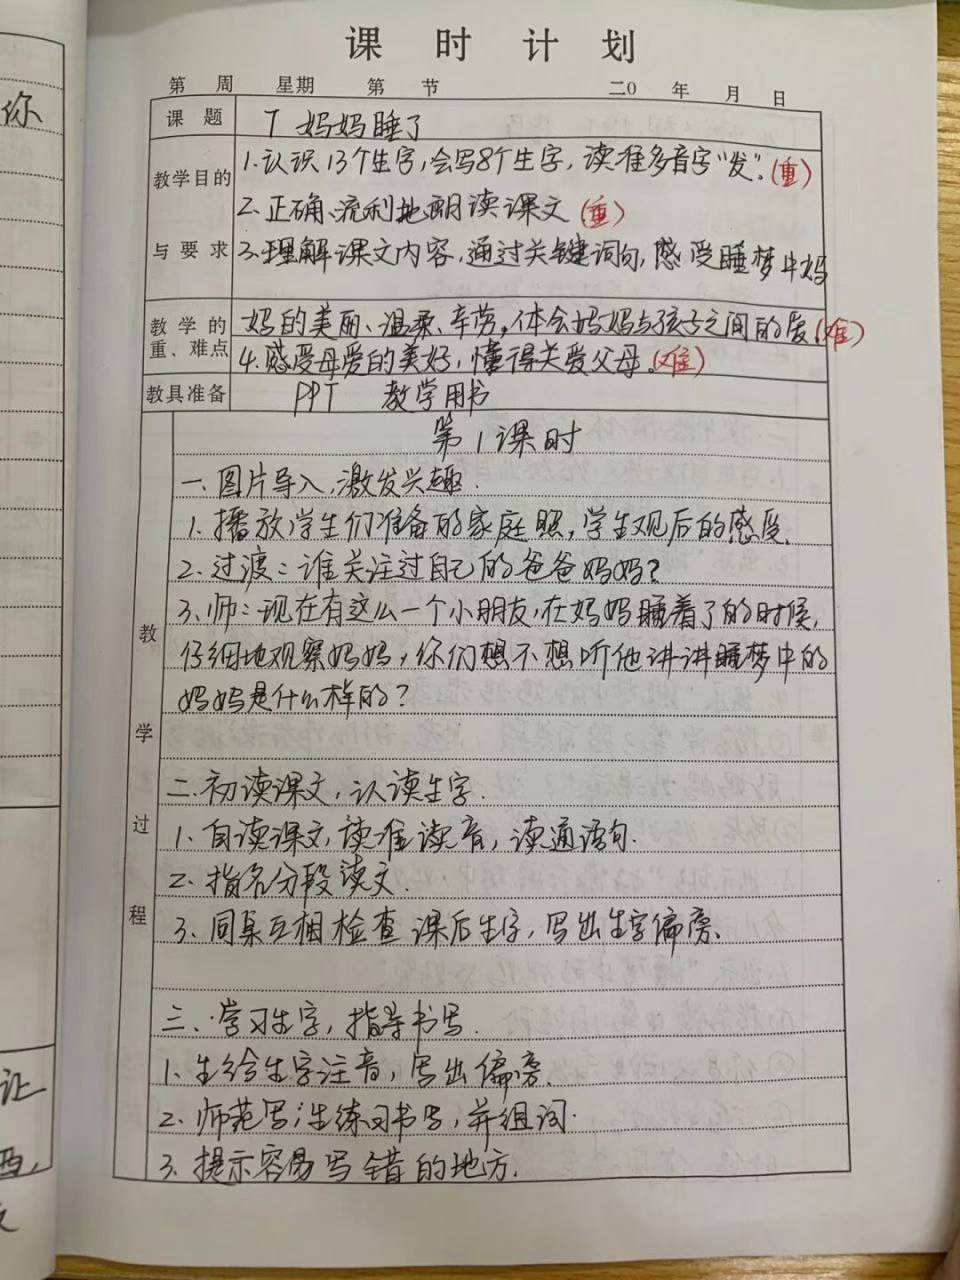 课 时 计 划
第 周 星期 第 节 二0 年 月 日
课 题 7 妈妈睡了
教学目的
与 要 求
1.认识13个生字,会写8个生字,读准多音字“发”。(重)
2.正确、流利地朗读课文(重)
3.理解课文内容,通过关键词句,感受睡梦中妈
教 学 的
重、难点
妈的美丽、温柔、辛劳。体会妈妈与孩子之间的爱。(难)
4.感受母爱的美好,懂得关爱父母。(难)
教具准备 PPT 教学用书
教 学 过 程
第1课时
一.图片导入,激发兴趣.
1.播放学生们准备的家庭照,学生观后的感受.
2.过渡:谁关注过自己的爸爸妈妈?
3.师:现在有这么一个小朋友,在妈妈睡着了的时候,
仔细地观察妈妈,你们想不想听他讲讲睡梦中的
妈妈是什么样的?
二.初读课文,认读生字.
1.自读课文,读准读音,读通语句.
2.指名分段读文.
3.同桌互相检查课后生字,写出生字偏旁.
三.学习生字,指导书写.
1.生给生字注音,写出偏旁.
2.师范写;生练习书写,并组词.
3.提示容易写错的地方.
你
让